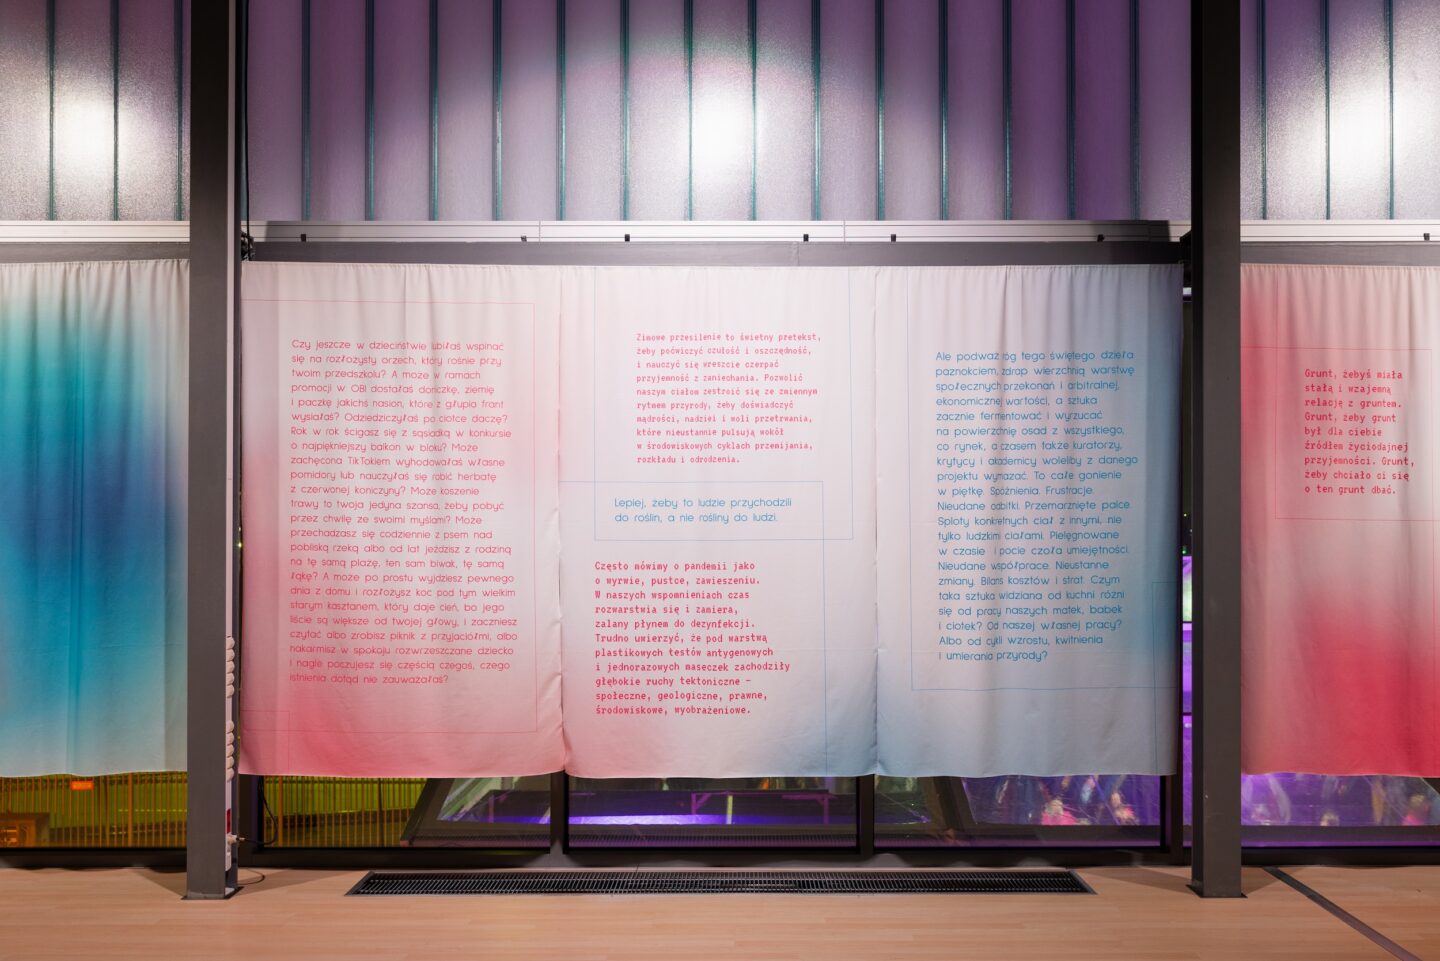 Czy jeszcze w dzieciństwie lubiłaś wspinać
się na rozłożysty orzech, który rośnie przy
twoim przedszkolu? A może w ramach
promocji w OBI dostałaś doniczkę, ziemię
i paczkę jakichś nasion, które z głupia frant
wysiałaś? Odziedziczyłaś po ciotce daczę?
Rok w rok ścigasz się z sąsiadką w konkursie
o najpiękniejszy balkon w bloku? Może
zachęcona TikTokiem wyhodowałaś własne
pomidory lub nauczyłaś się robić herbatę
z czerwonej koniczyny? Może koszenie
trawy to twoja jedyna szansa, żeby pobyć
przez chwilę ze swoimi myślami? Może
przechadzasz się codziennie z psem nad
pobliską rzeką albo od lat jeździsz z rodziną
na tę samą plażę, ten sam biwak, tę samą
łąkę? A może po prostu wyjdziesz pewnego
dnia z domu i rozłożysz koc pod tym wielkim
starym kasztanem, który daje cień, bo jego
liście są większe od twojej głowy, i zaczniesz
czytać albo zrobisz piknik z przyjaciółmi, albo
nakarmisz w spokoju rozwrzeszczane dziecko
i nagle poczujesz się częścią czegoś, czego
istnienia dotąd nie zauważałaś?
Zimowe przesilenie to świetny pretekst,
żeby poćwiczyć czułość i oszczędność,
i nauczyć się wreszcie czerpać
przyjemność z zaniechania. Pozwolić
naszym ciałom zestroić się ze zmiennym
rytmem przyrody, żeby doświadczyć
mądrości, nadziei i woli przetrwania,
które nieustannie pulsują wokół
w środowiskowych cyklach przemijania,
rozkładu i odrodzenia.
Lepiej, żeby to ludzie przychodzili
do roślin, a nie rośliny do ludzi.
Często mówimy o pandemii jako
o wyrwie, pustce, zawieszeniu.
W naszych wspomnieniach czas
rozwarstwia się i zamiera,
zalany płynem do dezynfekcji.
Trudno uwierzyć, że pod warstwą
plastikowych testów antygenowych
i jednorazowych maseczek zachodziły
głębokie ruchy tektoniczne –
społeczne, geologiczne, prawne,
środowiskowe, wyobrażeniowe.
Ale podważ róg tego świętego dzieła
paznokciem, zdrap wierzchnią warstwę
społecznych przekonań i arbitralnej,
ekonomicznej wartości, a sztuka
zacznie fermentować i wyrzucać
na powierzchnię osad z wszystkiego,
co rynek, a czasem także kuratorzy,
krytycy i akademicy woleliby z danego
projektu wymazać. To całe gonienie
w piętkę. Spóźnienia. Frustracje.
Nieudane odbitki. Przemarznięte palce.
Sploty konkretnych ciał z innymi, nie
tylko ludzkimi ciałami. Pielęgnowane
w czasie i pocie czoła umiejętności.
Nieudane współprace. Nieustanne
zmiany. Bilans kosztów i strat. Czym
taka sztuka widziana od kuchni różni
się od pracy naszych matek, babek
i ciotek? Od naszej własnej pracy?
Albo od cykli wzrostu, kwitnienia
i umierania przyrody?
Grunt, żebyś miała
stałą i wzajemną
relację z gruntem.
Grunt, żeby grunt
był dla ciebie
źródłem życiodajnej
przyjemności. Grunt,
żeby chciało ci się
o ten grunt dbać.